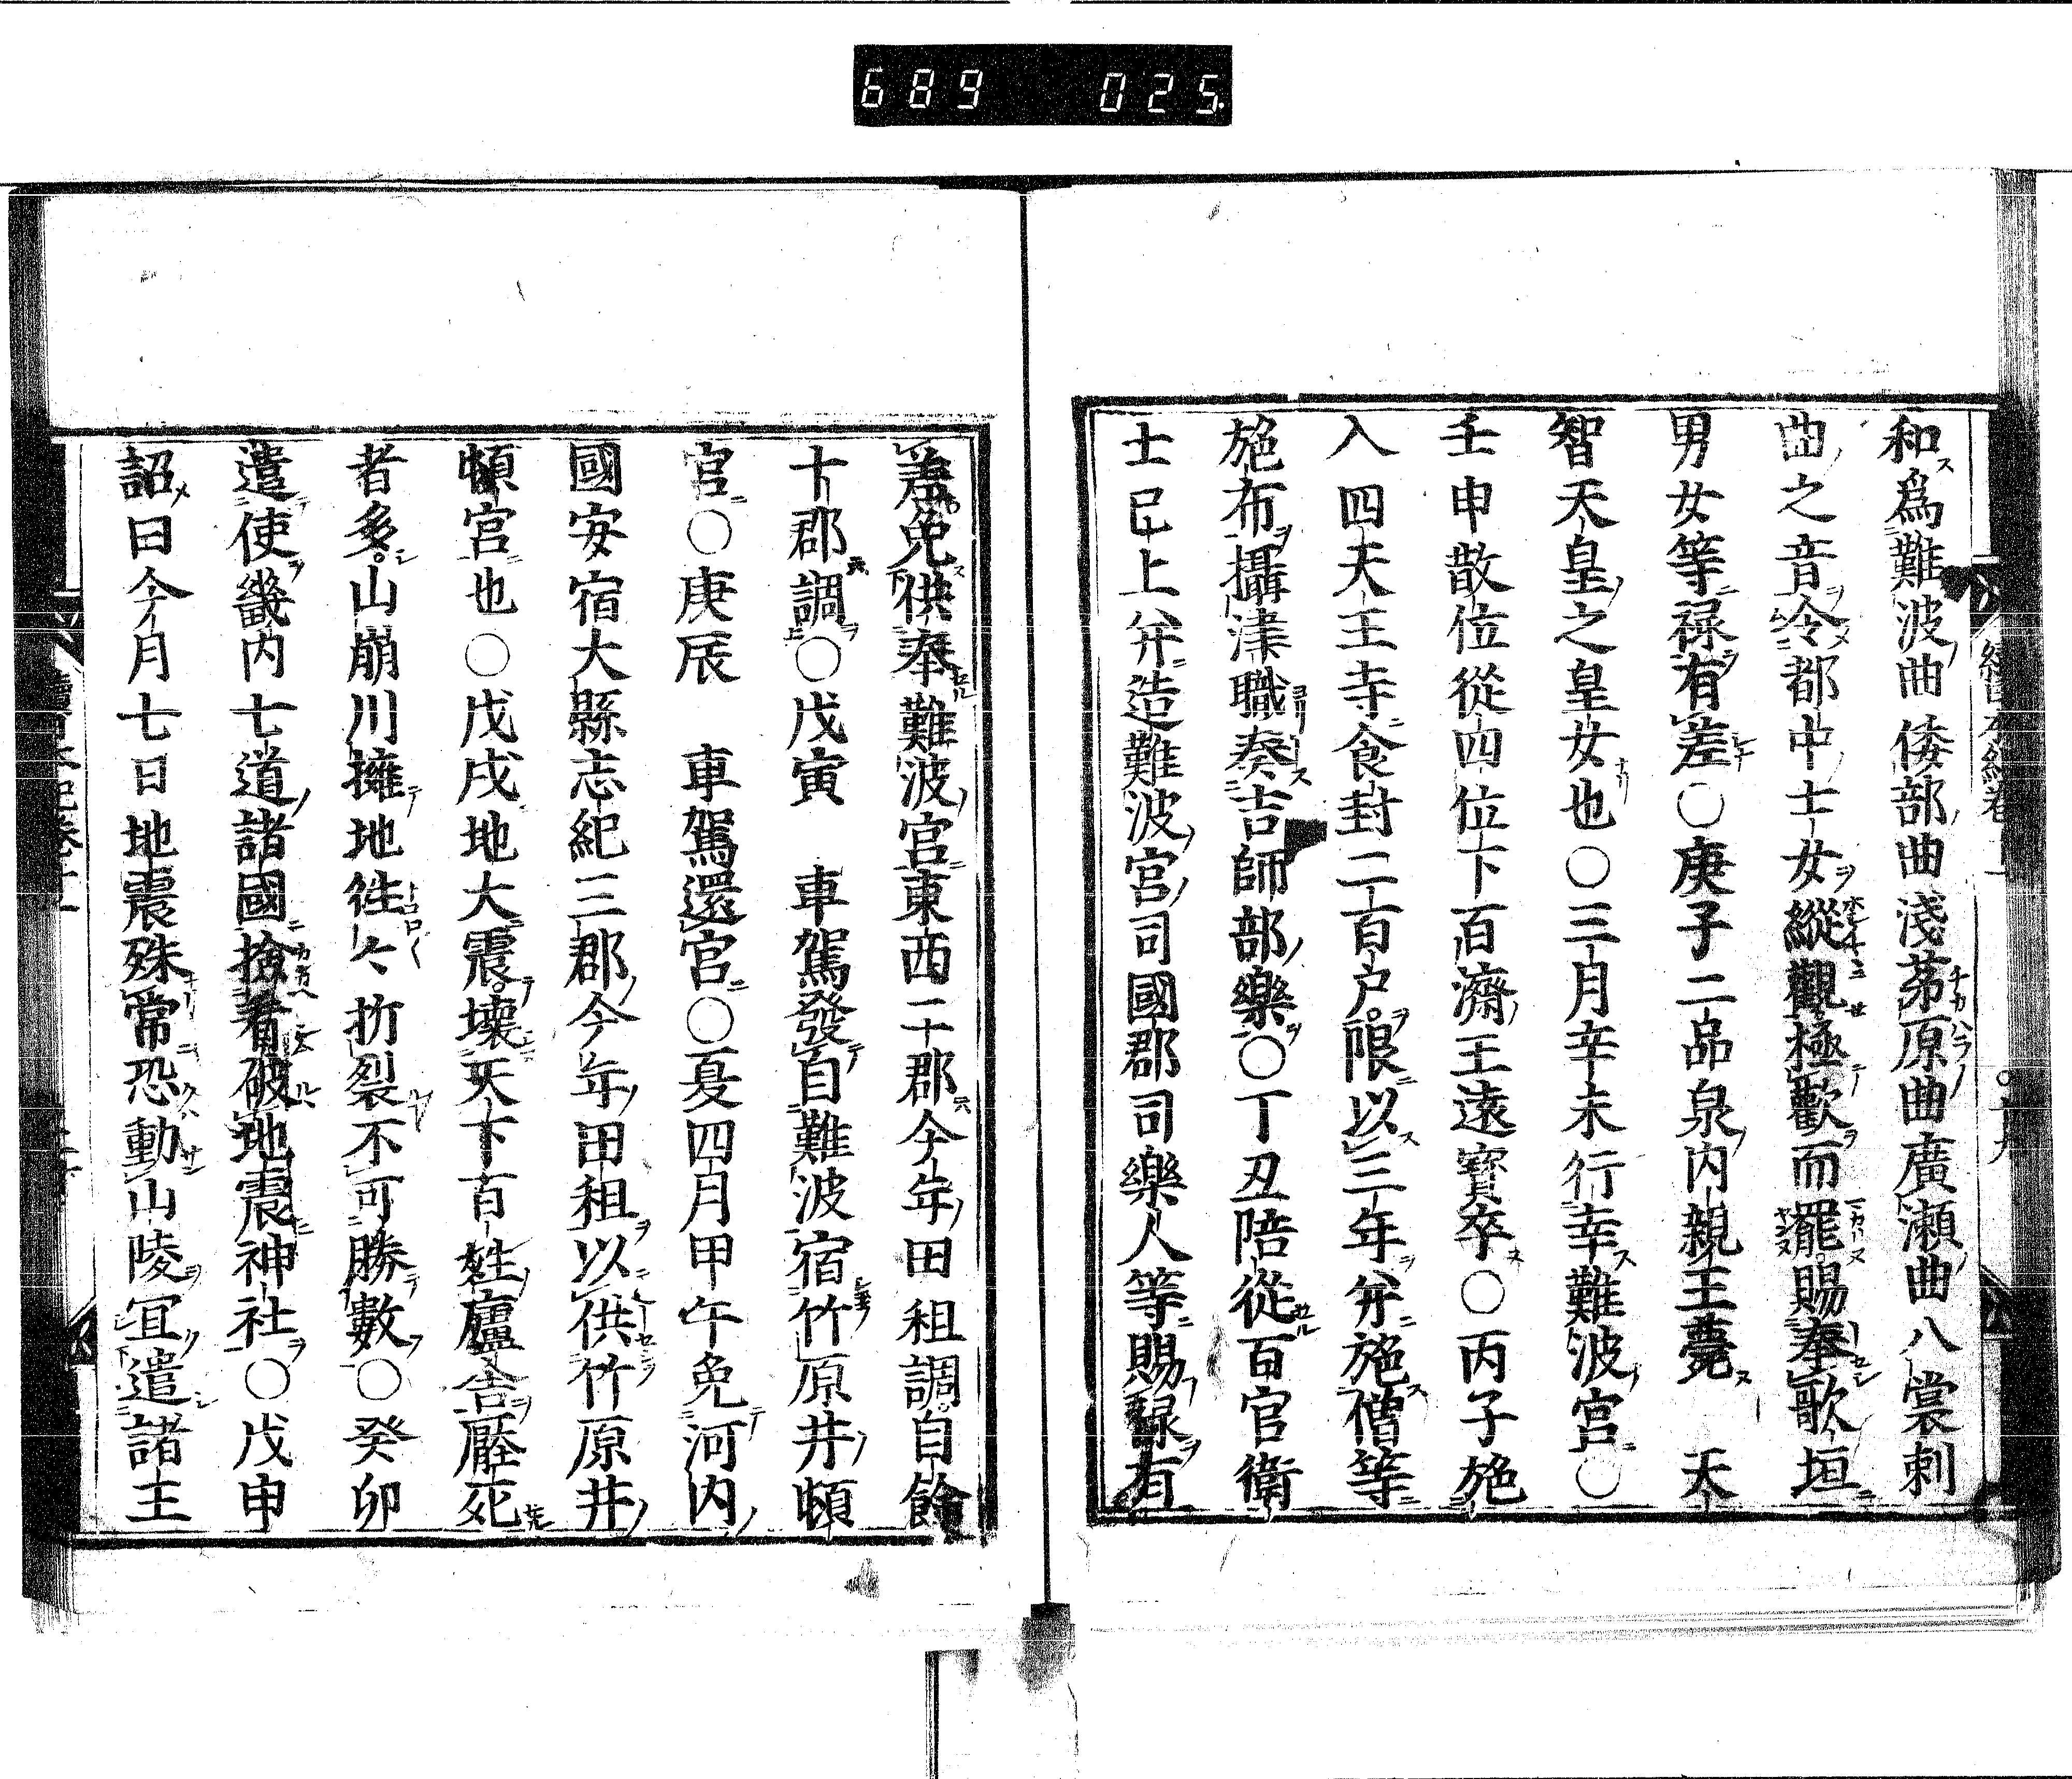 689 025
和爲難波曲倭部曲淺茅原曲廣瀬曲八裳刺
曲之音令都中士女縱觀極歡而罷賜奉歌垣
男女等禄有差○庚子二品泉内親王薨　天
智天皇之皇女也○三月辛未行幸難波宮○
壬申散位從四位下百濟王遠寳卒○丙子施
入四天王寺食封二百戸限以三年并施僧等
施布攝津職奏吉師部樂○丁丑陪從百官衛
士已上并造難波宮司國郡司樂人等賜禄有
差免供奉難波宮東西二十郡今年田租調自餘
十郡調○戊寅　車駕發自難波宿竹原井頓
宮○庚辰　車駕還宮○夏四月甲午免河内
國安宿大縣志紀三郡今年田租以供竹原井
頓宮也○戊戌地大震壞天下百姓廬舍壓死
者多山崩川擁地徃々折裂不可勝數○癸卯
遣使畿内七道諸國撿看破地震神社○戊申
詔曰今月七日地震殊常恐動山陵宜遣諸王